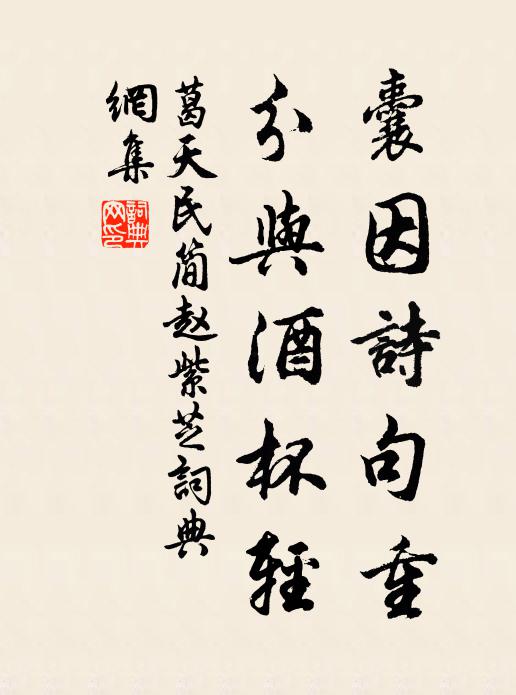 囊因詩句重
分與酒杯輕
葛天民简赵紫芝詞典
網集
詞典網印